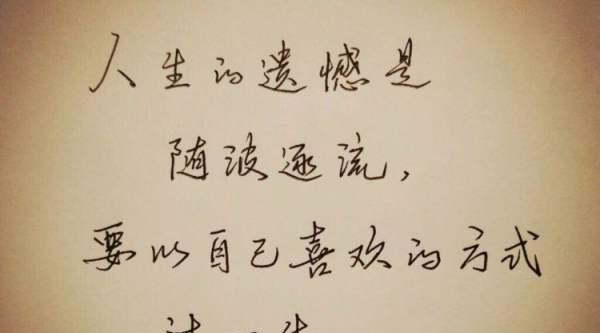 人生的遗憾是
随波逐流,
要以自己喜欢的方式